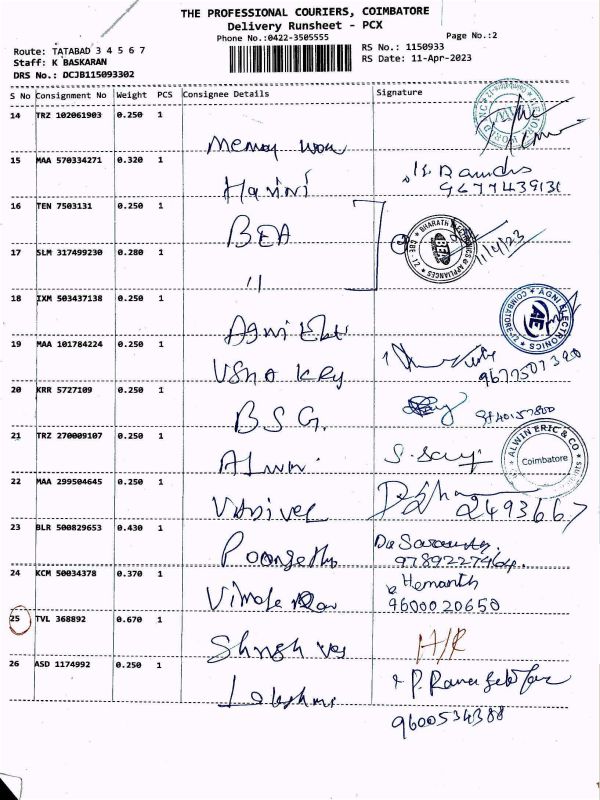 THE PROFESSIONAL COURIERS, COIMBATORE
Delivery Runsheet - PCX
Phone No.:0422-3505555
Page No.:2
Route: TATABAD 3 4 5 6 7
RS No.: 1150933
Staff: K BASKARAN
RS Date: 11-Apr-2023
DRS No.: DCJB115093302
S No Consignment No Weight PCS Consignee Details Signature
14 TRZ 102061903 0.250 1
Memory
15 MAA 570334271 0.320 1
Harini
9677439131
16 TEN 7503131 0.250 1
BEA
BHARATH ELECTRONICS & APPLIANCES
BEA
11/4/23
17 SLM 317499230 0.280 1
"
18 IXM 503437138 0.250 1
Agni
AGNI ELECTRONICS
AE
COIMBATORE-12
19 MAA 101784224 0.250 1
Usha
20 KRR 5727109 0.250 1
B.S.G.
21 TRZ 270009107 0.250 1
Alwin
ALWIN ERIC & CO
Coimbatore
22 MAA 299504645 0.250 1
2493667
23 BLR 500829653 0.430 1
9789227464
24 KCM 50034378 0.370 1
Hemanth
9600020650
25 TVL 368892 0.670 1
26 ASD 1174992 0.250 1
Lakshmi
9600534388